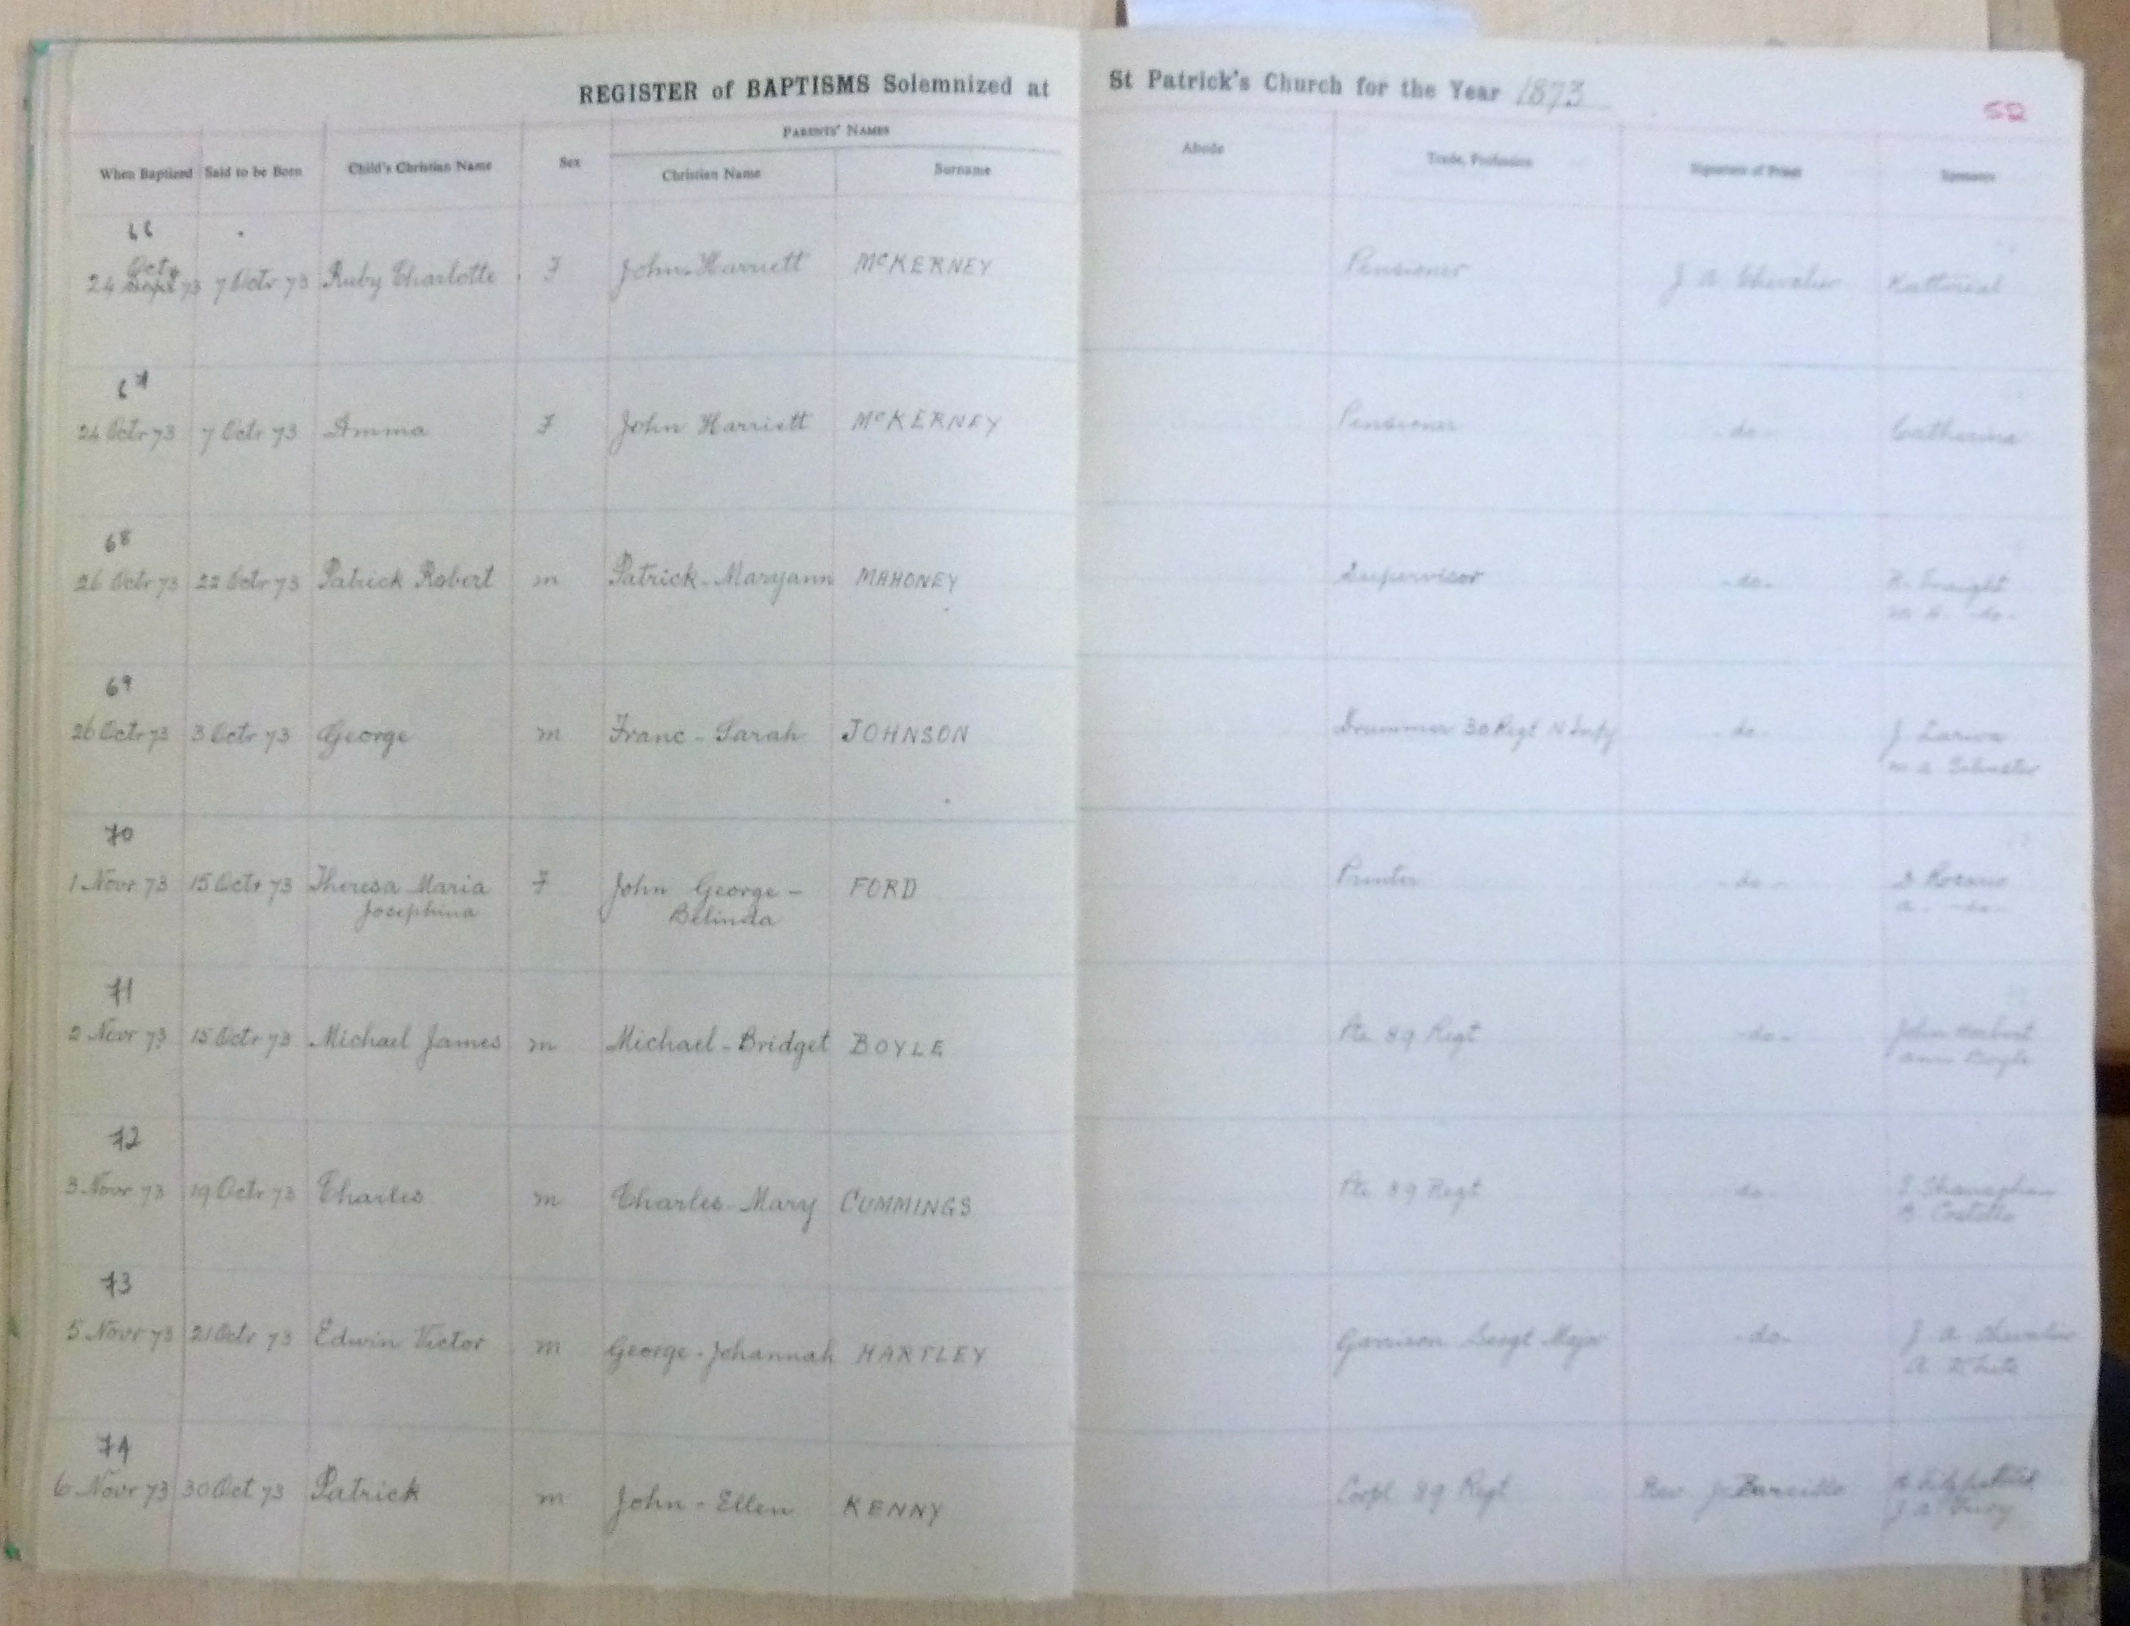 REGISTER of BAPTISMS Solemnized at St Patrick's Church for the Year 1873
52
PARENTS' NAMES
When Baptized Said to be Born Child's Christian Name Sex Christian Name Surname Abode Trade, Profession Signature of Priest Sponsors
66
Octr
24 Sept 73 7 Octr 73 Ruby Charlotte F John Harriett McKERNEY Pensioner J A Chevalier
67
24 Octr 73 7 Octr 73 Amma F John Harriett McKERNEY Pensioner - do - Catherine
68
26 Octr 73 22 Octr 73 Patrick Robert m Patrick - Maryann MAHONEY Supervisor - do -
- do -
69
26 Octr 73 3 Octr 73 George m Franc - Sarah JOHNSON Drummer 30 Regt N Infy - do - J
m a
70
1 Novr 73 15 Octr 73 Theresa Maria F John George - FORD Printer - do - D Rozario
Josephina Belinda a - do -
71
2 Novr 73 15 Octr 73 Michael James m Michael - Bridget BOYLE Pte 89 Regt - do - John
Ann Boyle
72
3 Novr 73 19 Octr 73 Charles m Charles - Mary CUMMINGS Pte 89 Regt do Shanaghan
B Costello
73
5 Novr 73 21 Octr 73 Edwin Victor m George - Johannah HARTLEY Garrison Sergt Major - do - J A Chevalier
A White
74
6 Novr 73 30 Oct 73 Patrick m John - Ellen KENNY Corpl 89 Regt Rev J Bareille Fitzpatrick